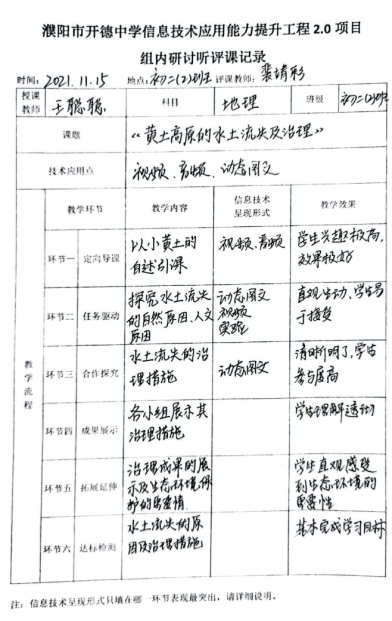 濮阳市开德中学信息技术应用能力提升工程 2.0 项目
组内研讨听评课记录
时间：2021.11.15 地点：初二(2)班 评课教师：裴靖彩
授课教师 王聪聪 科目 地理 班级 初二(2)班
课题 《黄土高原的水土流失及治理》
技术应用点 视频、音频、动态图文
教学流程
教学环节 教学内容 信息技术呈现形式 教学效果
环节一 定向导课 以小黄土的自述引课 视频、音频 学生兴趣极高，效果极好
环节二 任务驱动 探究水土流失的自然原因、人文原因 动态图文 视频 实验 直观生动、学生易于接受
环节三 合作探究 水土流失的治理措施 动态图文 清晰明了，学生参与度高
环节四 成果展示 各小组展示其治理措施 学生理解透彻
环节五 拓展延伸 治理成果的展示及生态环境保护的重要性 学生直观感受到生态环境的重要性
环节六 达标检测 水土流失的原因及治理措施 基本完成学习目标
注：信息技术呈现形式只填在哪一环节表现最突出，请详细说明。